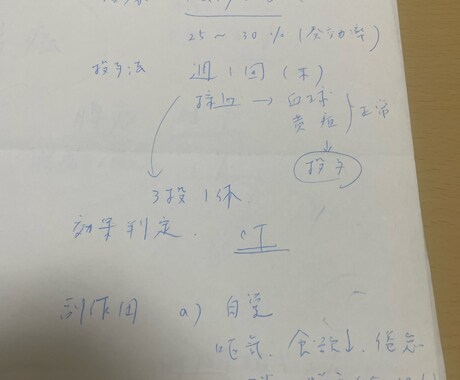 25～30%(奏効率)
投与法 週1回(木)
採血→白球
黄疸 } 正常
↓
投与
3投1休
効果判定. CT
副作用 a) 自覚
吐気、食欲↓、倦怠